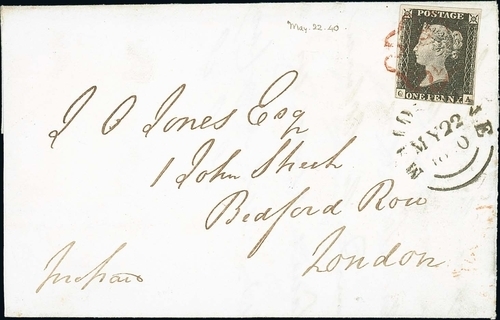 May. 22. 40
POSTAGE
C A
ONE PENNY
MY 22
J O Jones Esq
1 John Street
Bedford Row
London